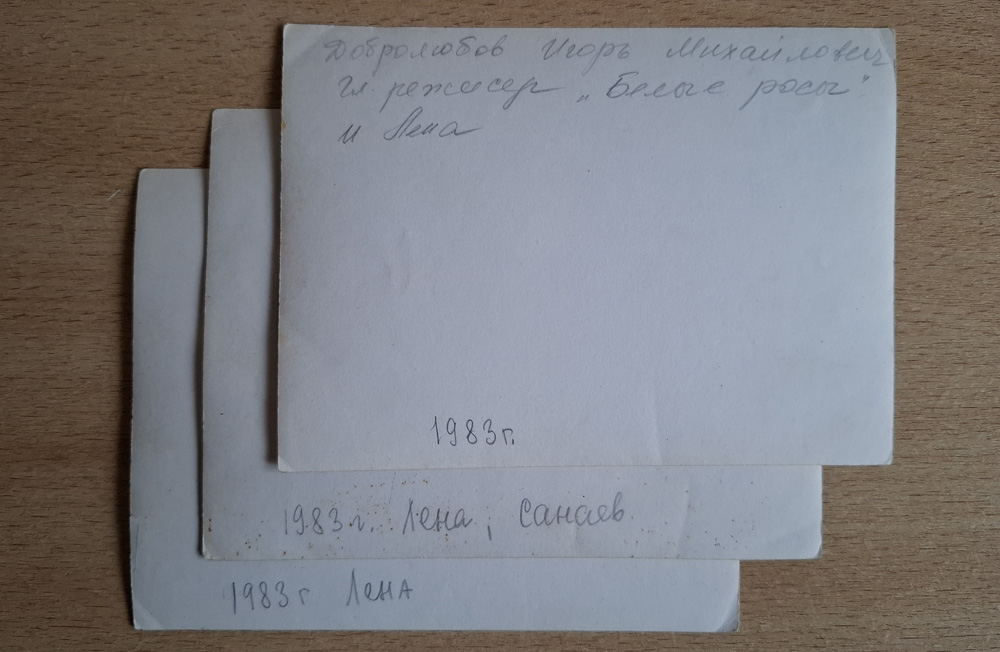 Добролюбов Игорь Михайлович
Гл. режисер „Белые росы"
и Лена
1983г.
1983г. Лена, Санаев.
1983г Лена